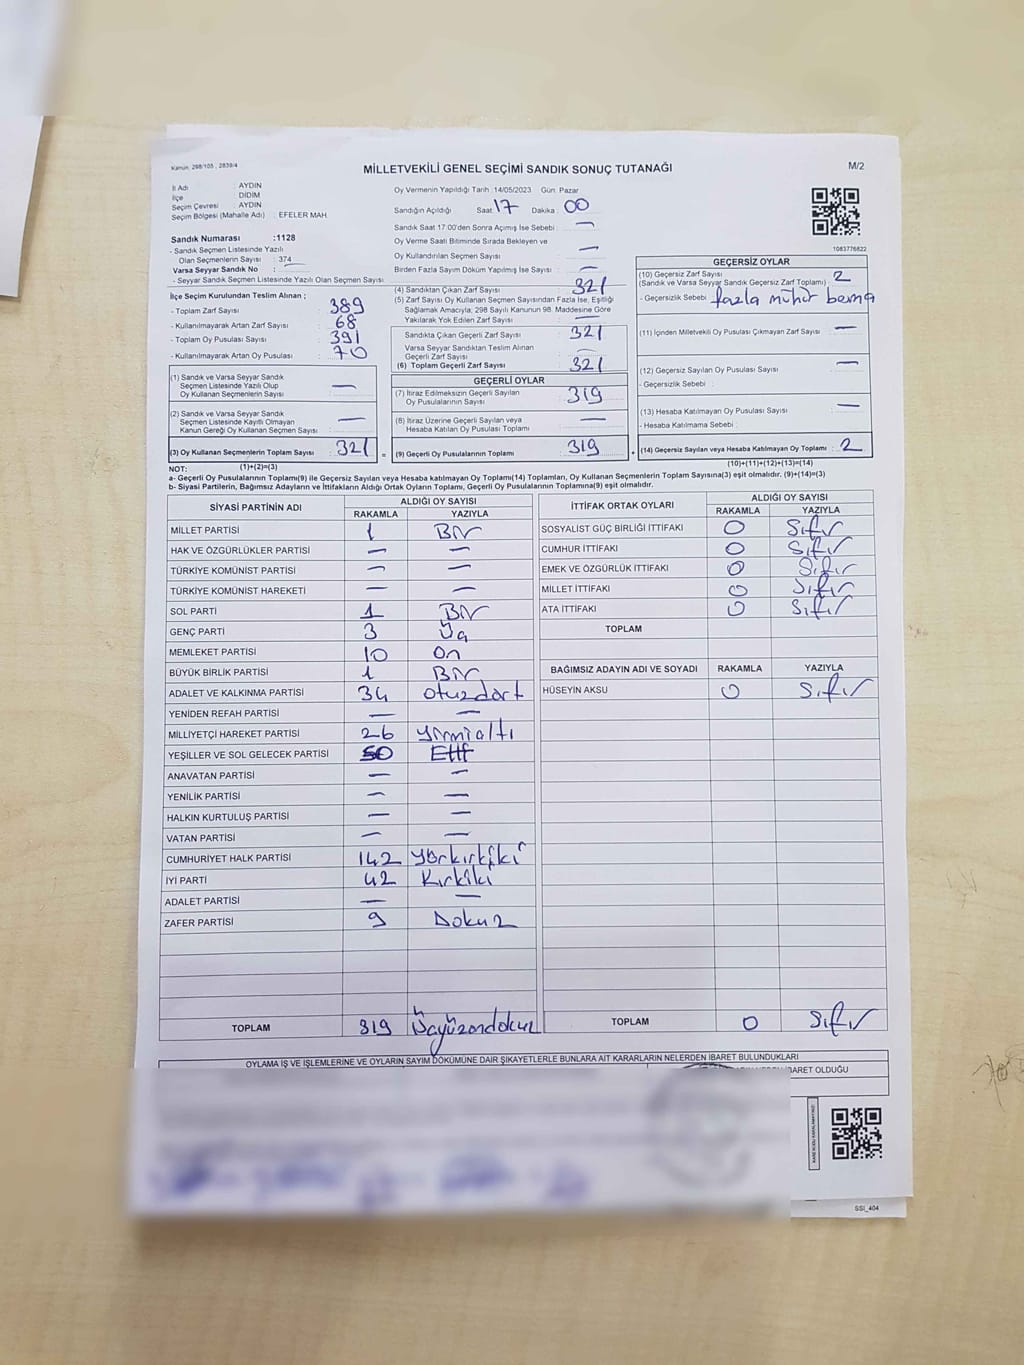 Kanun: 298/105 , 2839/4
MİLLETVEKİLİ GENEL SEÇİMİ SANDIK SONUÇ TUTANAĞI
M/2
İl Adı : AYDIN
İlçe : DİDİM
Seçim Çevresi : AYDIN
Seçim Bölgesi (Mahalle Adı) : EFELER MAH.
Sandık Numarası :1128
- Sandık Seçmen Listesinde Yazılı
Olan Seçmenlerin Sayısı : 374
Varsa Seyyar Sandık No : —
- Seyyar Sandık Seçmen Listesinde Yazılı Olan Seçmen Sayısı
İlçe Seçim Kurulundan Teslim Alınan ;
- Toplam Zarf Sayısı : 389
- Kullanılmayarak Artan Zarf Sayısı : 68
- Toplam Oy Pusulası : 391
- Kullanılmayarak Artan Oy Pusulası : 70
(1) Sandık ve Varsa Seyyar Sandık
Seçmen Listesinde Yazılı Olup
Oy Kullanan Seçmenlerin Sayısı —
(2) Sandık ve Varsa Seyyar Sandık
Seçmen Listesinde Kayıtlı Olmayan
Kanun Gereği Oy Kullanan Seçmen Sayısı : —
(3) Oy Kullanan Seçmenlerin Toplam Sayısı : 321
Oy Vermenin Yapıldığı Tarih :14/05/2023 Gün: Pazar
Sandığın Açıldığı Saat: 17 Dakika : 00
Sandık Saat 17:00'den Sonra Açılmış İse Sebebi : —
Oy Verme Saati Bitiminde Sırada Bekleyen ve
Oy Kullandırılan Seçmen Sayısı —
Birden Fazla Sayım Döküm Yapılmış İse Sayısı : —
(4) Sandıktan Çıkan Zarf Sayısı : 321
(5) Zarf Sayısı Oy Kullanan Seçmen Sayısından Fazla İse, Eşitliği
Sağlamak Amacıyla; 298 Sayılı Kanunun 98. Maddesine Göre
Yakılarak Yok Edilen Zarf Sayısı : —
Sandıkta Çıkan Geçerli Zarf Sayısı : 321
Varsa Seyyar Sandıktan Teslim Alınan
Geçerli Zarf Sayısı —
(6) Toplam Geçerli Zarf Sayısı : 321
GEÇERLİ OYLAR
(7) İtiraz Edilmeksizin Geçerli Sayılan
Oy Pusulalarının Sayısı : 319
(8) İtiraz Üzerine Geçerli Sayılan veya
Hesaba Katılan Oy Pusulası Toplamı —
= (9) Geçerli Oy Pusulalarının Toplamı : 319 +
1083776822
GEÇERSİZ OYLAR
(10) Geçersiz Zarf Sayısı
(Sandık ve Varsa Seyyar Sandık Geçersiz Zarf Toplamı) : 2
- Geçersizlik Sebebi : fazla mühür basma
(11) İçinden Milletvekili Oy Pusulası Çıkmayan Zarf Sayısı : —
(12) Geçersiz Sayılan Oy Pusulası Sayısı : —
- Geçersizlik Sebebi :
(13) Hesaba Katılmayan Oy Pusulası Sayısı : —
- Hesaba Katılmama Sebebi :
(14) Geçersiz Sayılan veya Hesaba Katılmayan Oy Toplamı : 2
NOT: (1)+(2)=(3)
(10)+(11)+(12)+(13)=(14)
a- Geçerli Oy Pusulalarının Toplamı(9) ile Geçersiz Sayılan veya Hesaba katılmayan Oy Toplamı(14) Toplamları, Oy Kullanan Seçmenlerin Toplam Sayısına(3) eşit olmalıdır. (9)+(14)=(3)
b- Siyasi Partilerin, Bağımsız Adayların ve İttifakların Aldığı Ortak Oyların Toplamı, Geçerli Oy Pusulalarının Toplamına(9) eşit olmalıdır.
SİYASİ PARTİNİN ADI
ALDIĞI OY SAYISI
RAKAMLA YAZIYLA
MİLLET PARTİSİ 1 Bir
HAK VE ÖZGÜRLÜKLER PARTİSİ — —
TÜRKİYE KOMÜNİST PARTİSİ — —
TÜRKİYE KOMÜNİST HAREKETİ — —
SOL PARTİ 1 Bir
GENÇ PARTİ 3 Üç
MEMLEKET PARTİSİ 10 On
BÜYÜK BİRLİK PARTİSİ 1 Bir
ADALET VE KALKINMA PARTİSİ 34 otuzdört
YENİDEN REFAH PARTİSİ — —
MİLLİYETÇİ HAREKET PARTİSİ 26 yirmialtı
YEŞİLLER VE SOL GELECEK PARTİSİ 50 Elli
ANAVATAN PARTİSİ — —
YENİLİK PARTİSİ — —
HALKIN KURTULUŞ PARTİSİ — —
VATAN PARTİSİ — —
CUMHURİYET HALK PARTİSİ 142 yüzkırkiki
İYİ PARTİ 42 Kırkiki
ADALET PARTİSİ — —
ZAFER PARTİSİ 9 Dokuz
TOPLAM 319 Üçyüzondokuz
İTTİFAK ORTAK OYLARI
ALDIĞI OY SAYISI
RAKAMLA YAZIYLA
SOSYALİST GÜÇ BİRLİĞİ İTTİFAKI 0 Sıfır
CUMHUR İTTİFAKI 0 Sıfır
EMEK VE ÖZGÜRLÜK İTTİFAKI 0 Sıfır
MİLLET İTTİFAKI 0 Sıfır
ATA İTTİFAKI 0 Sıfır
TOPLAM
BAĞIMSIZ ADAYIN ADI VE SOYADI RAKAMLA YAZIYLA
HÜSEYİN AKSU 0 Sıfır
TOPLAM 0 Sıfır
OYLAMA İŞ VE İŞLEMLERİNE VE OYLARIN SAYIM DÖKÜMÜNE DAİR ŞİKAYETLERLE BUNLARA AİT KARARLARIN NELERDEN İBARET BULUNDUKLARI
İBARET OLDUĞU
SSI_404